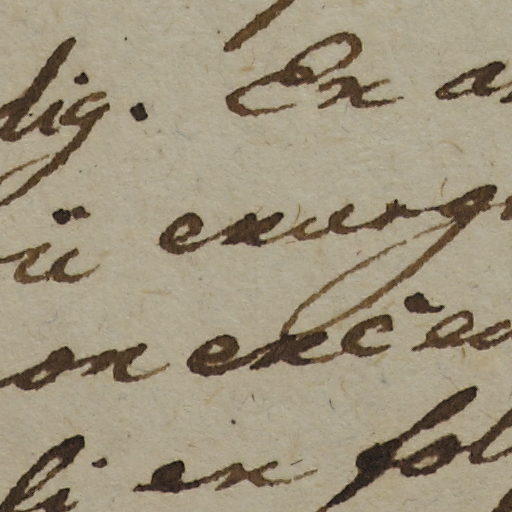 dig. Ex a
ii exurg
on exced
li ex fol